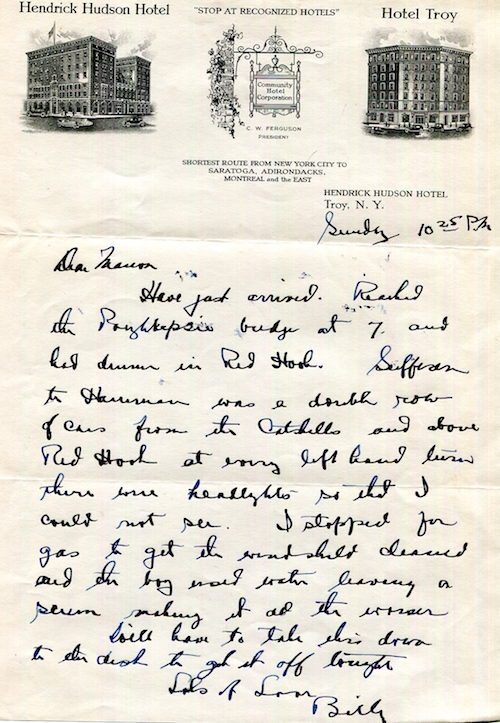 Hendrick Hudson Hotel
"STOP AT RECOGNIZED HOTELS"
Hotel Troy
Community
Hotel
Corporation
C. W. FERGUSON
PRESIDENT
SHORTEST ROUTE FROM NEW YORK CITY TO
SARATOGA, ADIRONDACKS,
MONTREAL and the EAST
HENDRICK HUDSON HOTEL
Troy, N. Y.
Sunday 10 25 P.M
Dear Marion
Have just arrived. Reached
the Poughkepsie bridge at 7. and
had dinner in Red Hook. Suffern
to Harriman was a double row
of cars from the Catskills and above
Red Hook at every left hand turn
there were headlights so that I
could not see. I stopped for
gas to get the windshild cleaned
and the boy used water leaving a
scum making it all the worser
Will have to take this down
to the desk to get it off tonight
Lots of Love
Billy